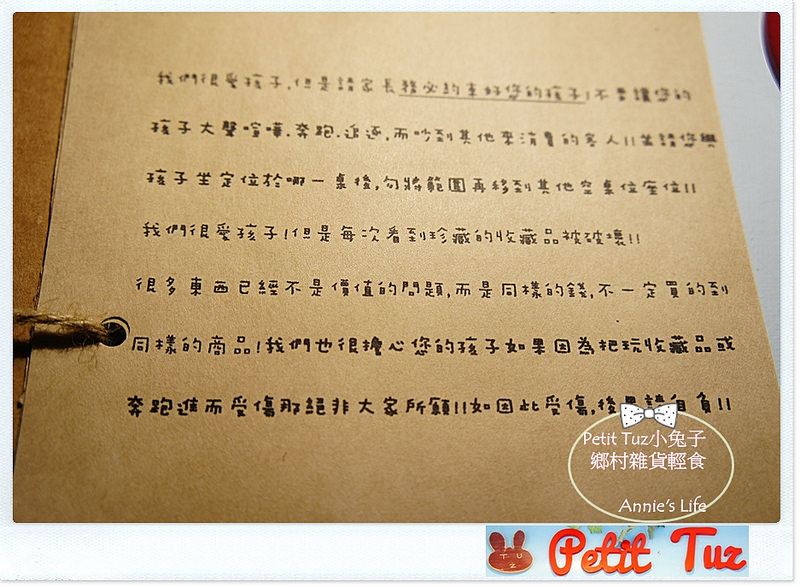 我們很愛孩子,但是請家長務必約束好您的孩子!不要讓您的
孩子大聲喧嘩.奔跑.追逐,而吵到其他來消費的客人!!並請您與
孩子坐定位於哪一桌後,勿將範圍再移到其他空桌位座位!!
我們很愛孩子!但是每次看到珍藏的收藏品被破壞!!
很多東西已經不是價值的問題,而是同樣的錢,不一定買的到
同樣的商品!我們也很擔心您的孩子如果因為把玩收藏品或
奔跑進而受傷那絕非大家所願!!如因此受傷,後果請自負!!
Petit Tuz小兔子
鄉村雜貨輕食
Annie's Life
TUZ
Petit Tuz